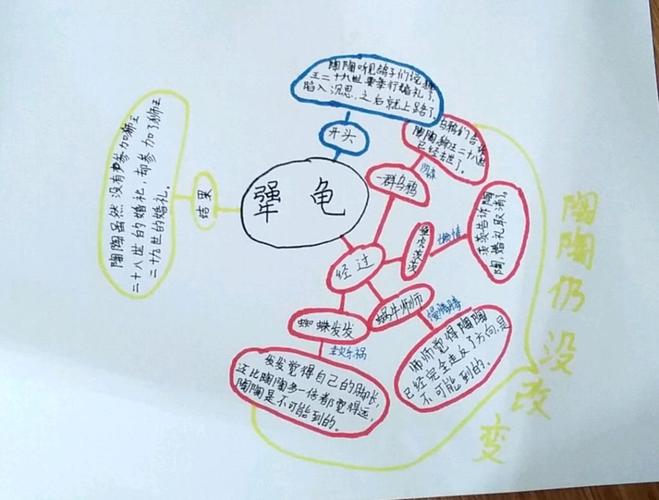 陶陶听见鸽子们说狮
王二十八世要举行婚礼了,
陷入沉思,之后就上路了
开头
犟龟
结果
陶陶虽然没有参加狮王
二十八世的婚礼,却参加了狮王
二十九世的婚礼。
经过
一群乌鸦
乌鸦们告诉
陶陶狮王二十八世
已经去世了。
壁虎茨茨
茨茨告诉陶
陶,婚礼取消。
蜗牛师师
慢腾腾
师师觉得陶陶
已经完全走反了方向,是
不可能到的。
蜘蛛发发
发发觉得自己的脚长,
还比陶陶多一倍都觉得远,
陶陶是不可能到的。
陶陶仍没改变